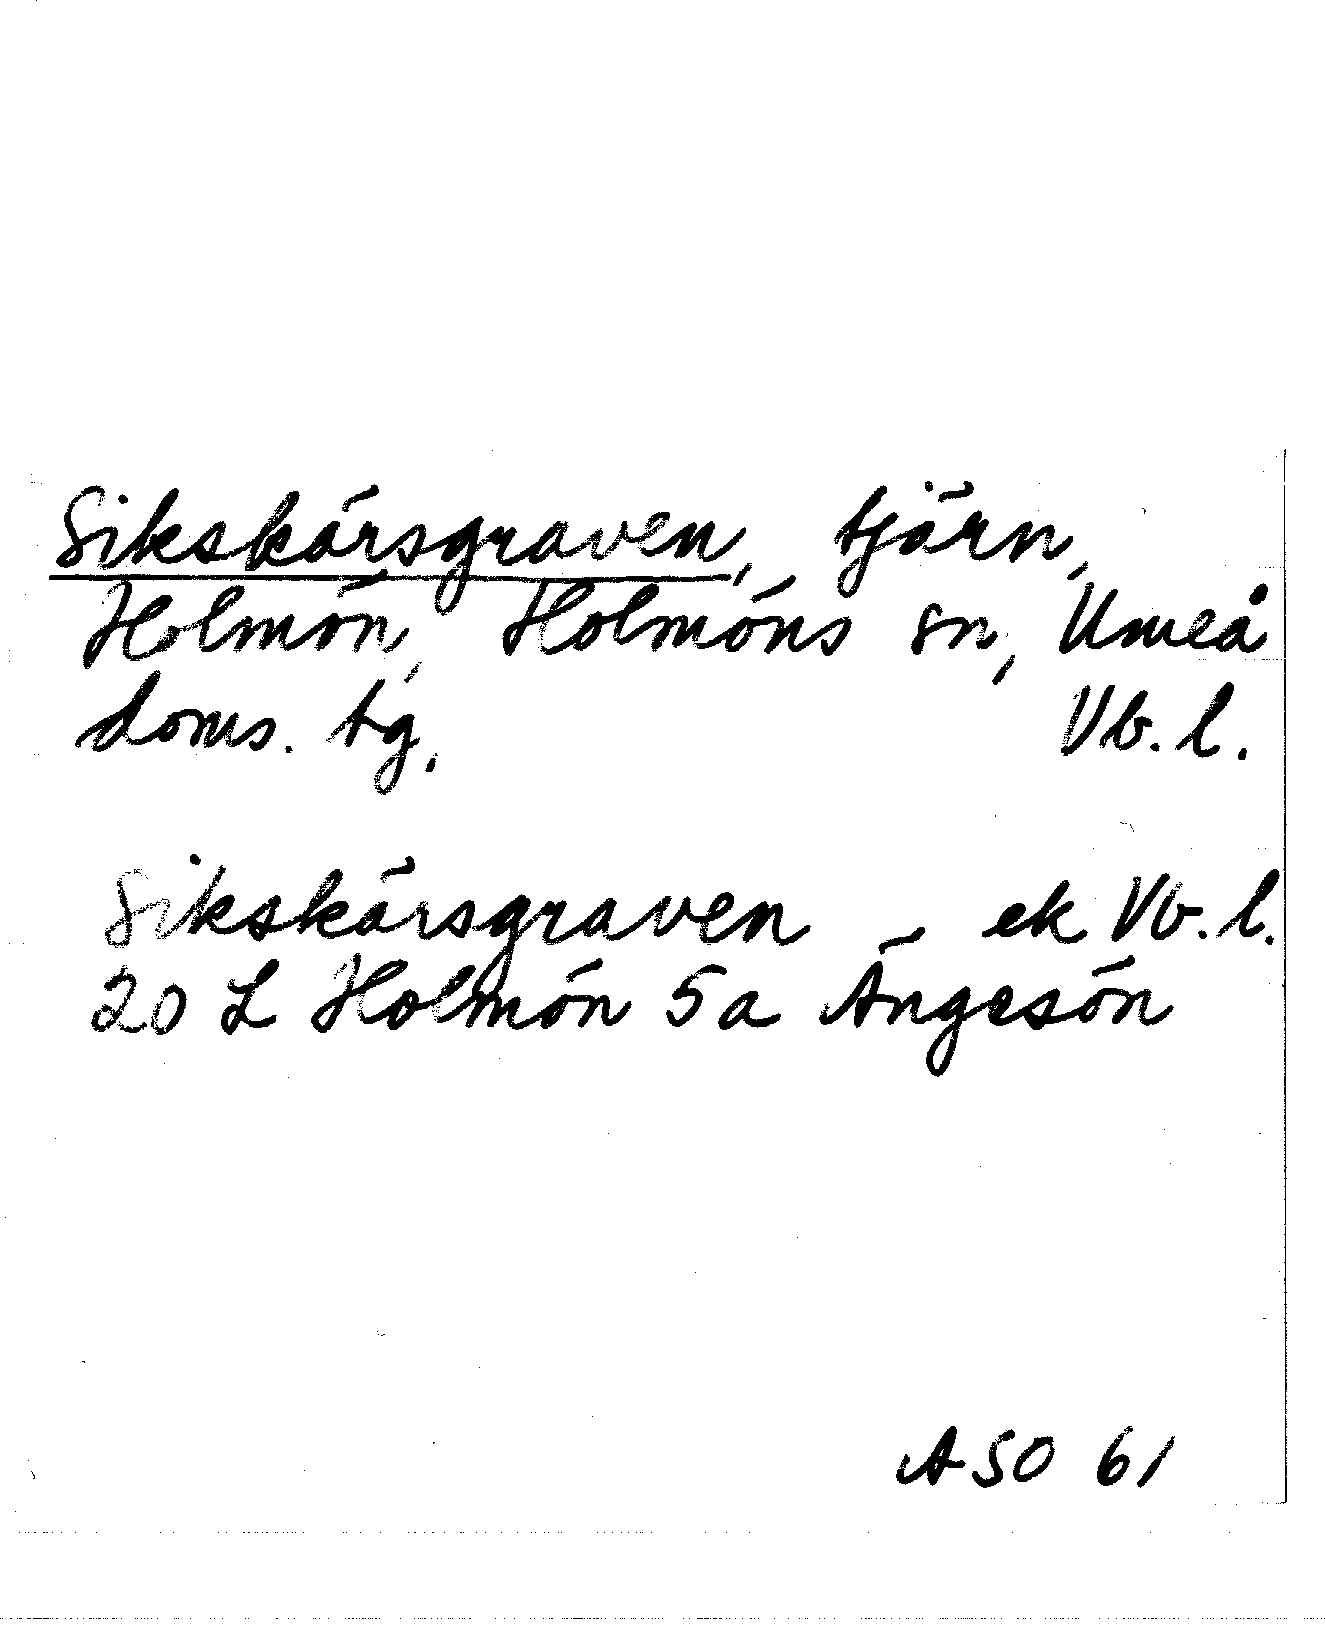 Sikskärsgraven, tjärn,
Holmön, Holmöns sn, Umeå
doms. tg. Vb. l.
Sikskärsgraven - ek Vb. l.
20 L Holmön 5a Ängesön
ASO 61